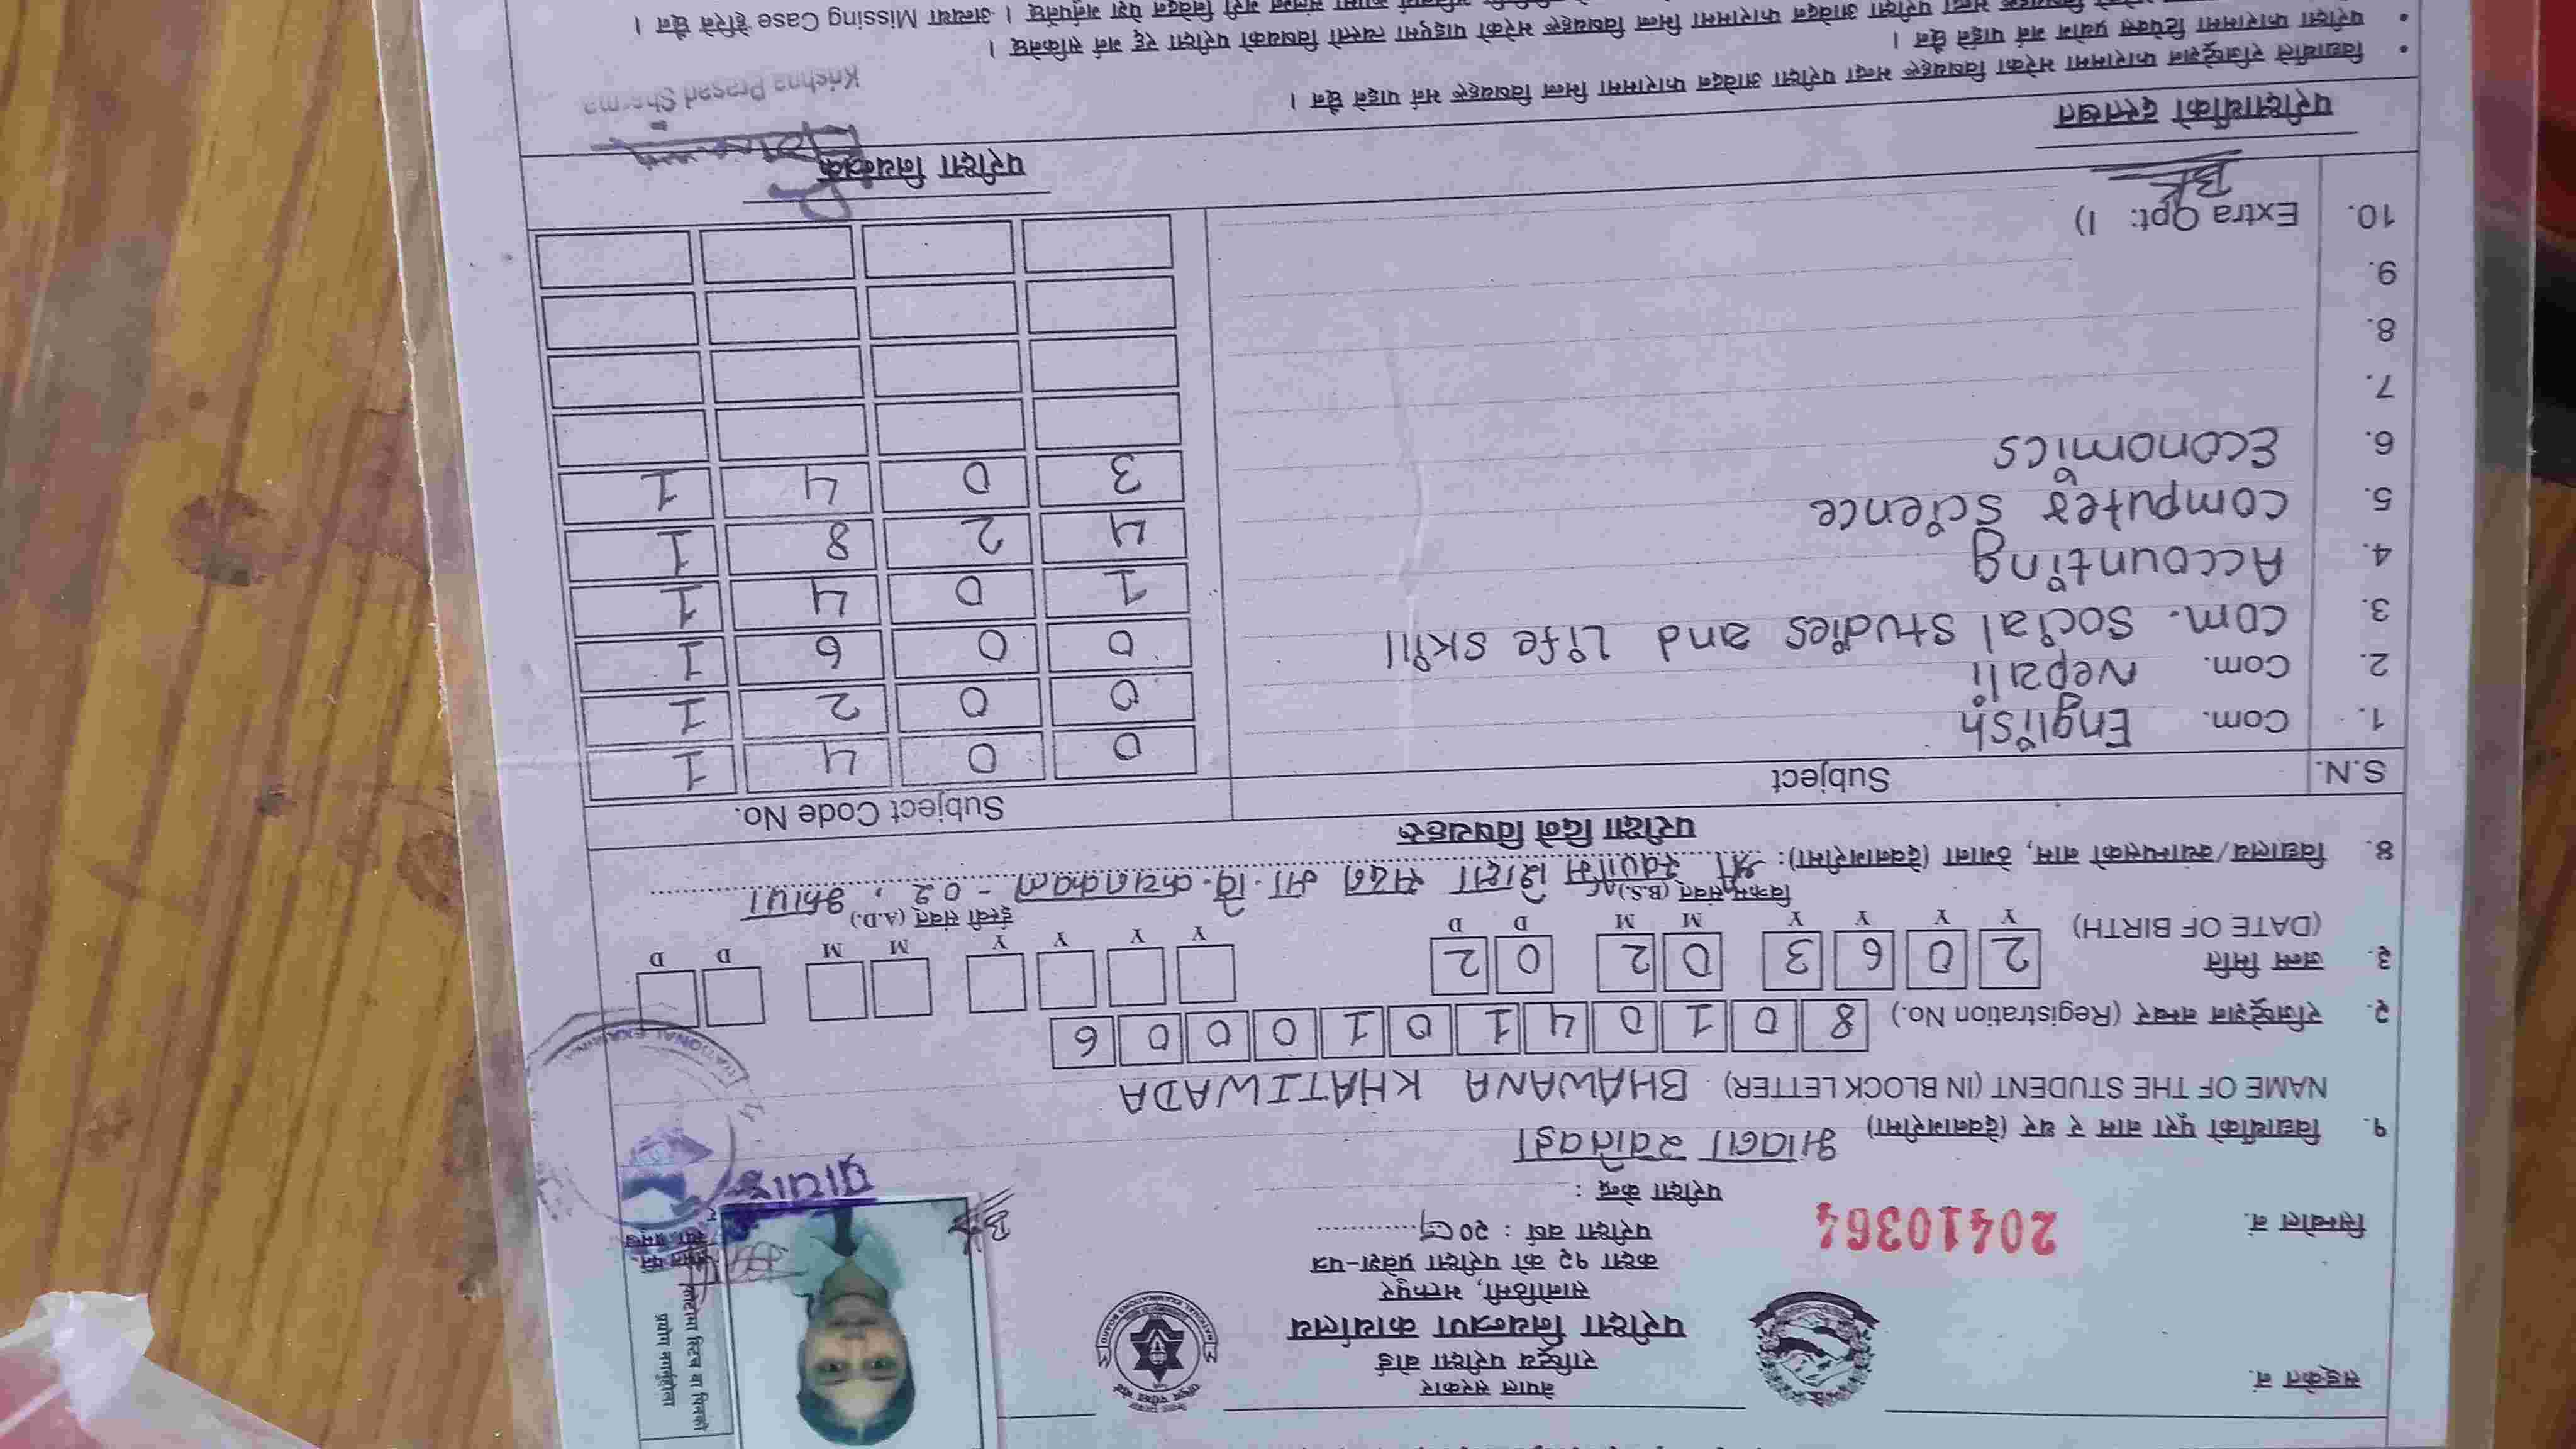 सङ्केत नं.
नेपाल सरकार
राष्ट्रिय परीक्षा बोर्ड
परीक्षा नियन्त्रण कार्यालय
सानोठिमी, भक्तपुर
कक्षा १२ को परीक्षा प्रवेश-पत्र
सिम्बोल नं. 20410364
परीक्षा वर्ष : २०८१
परीक्षा केन्द्र :
१. विद्यार्थीको पूरा नाम र थर (देवनागरीमा) भावना खतिवडा
NAME OF THE STUDENT (IN BLOCK LETTER) BHAWANA KHATIWADA
२. रजिष्ट्रेशन नम्बर (Registration No.) 8 0 1 0 4 1 0 1 0 0 0 6
३. जन्म मिति 2 0 6 3 0 2 0 2
(DATE OF BIRTH) Y Y Y Y M M D D Y Y Y Y M M D D
विक्रम संवत् (B.S.) ईस्वी संवत् (A.D.)
४. विद्यालय/क्याम्पसको नाम, ठेगाना (देवनागरीमा): श्री स्वर्णीम शिक्षा सदन मा.वि. कचनकवल - ०२, झापा
परीक्षा दिने विषयहरू
S.N. Subject Subject Code No.
1. Com. English 0 0 4 1
2. Com. Nepali 0 0 2 1
3. Com. Social Studies and Life Skill 0 0 6 1
4. Accounting 1 0 4 1
5. Computer Science 4 2 8 1
6. Economics 3 0 4 1
7.
8.
9.
10. Extra Opt: I)
BK
परीक्षार्थीको दस्तखत परीक्षा नियन्त्रक
Krishna Prasad Sharma
• विद्यार्थीले रजिष्ट्रेशन फाराममा भरेका विषयहरू भन्दा परीक्षा आवेदन फाराममा भिन्न विषयहरू भर्न पाइने छैन ।
• परीक्षा फाराममा टिपेक्स प्रयोग गर्न पाईने छैन ।
विषयहरू भन्दा परीक्षा आवेदन फाराममा भिन्न विषयहरू भरेको पाइएमा त्यस्तो विषयको परीक्षा रद्द गर्न सकिनेछ ।
संलग्न गरी निवेदन पेश गर्नुपर्नेछ । अन्यथा Missing Case हेरिने छैन ।